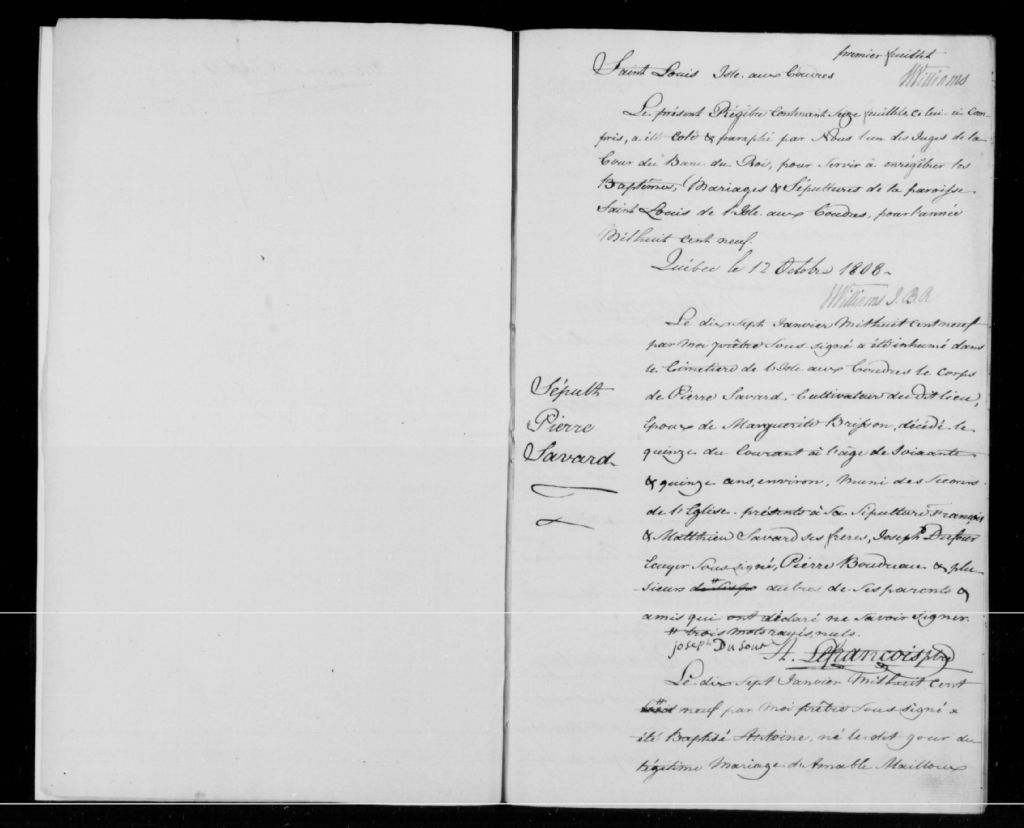 premier feuillet
Williams
Saint Louis Isle aux Coudres
Le présent Régitre Contenant Seize feuillets celui ci Com-
pris, a été coté & paraphé par Nous l'un des Juges de la
Cour du Banc du Roi, pour servir à enrégitrer les
Baptêmes, Mariages & Sépultures de la paroisse
Saint Louis de l'Isle aux Coudres, pour l'année
Mil huit cent neuf.
Québec le 12 Octobre 1808-
Williams J.B.R
Sépult.
Pierre
Savard-
Le dix sept Janvier Mil huit cent neuf
par moi prêtre Sous signé a été inhumé dans
le Cimetière de l'Isle aux Coudres le corps
de Pierre Savard, Cultivateur du Dit lieu,
Epoux de Marguerite Brisson, décédé le
quinze du Courant à l'âge de Soixante
& quinze ans, environ, Muni des Secours
de l'Eglise. présents à Sa Sépulture François
& Matthieu Savard ses frères, Joseph Dufour
Ecuyer Sous signé, Pierre Boudreau & plu-
sieurs autres de ses parents &
amis qui ont déclaré ne savoir signer.
# trois mots rayés nuls.
joseph Dufour
A. Lefrançois ptre
Le dix sept Janvier Mil huit cent
neuf par moi prêtre Sous signé a
été Baptisé Antoine, né le dit jour du
légitime Mariage de Amable Mailloux